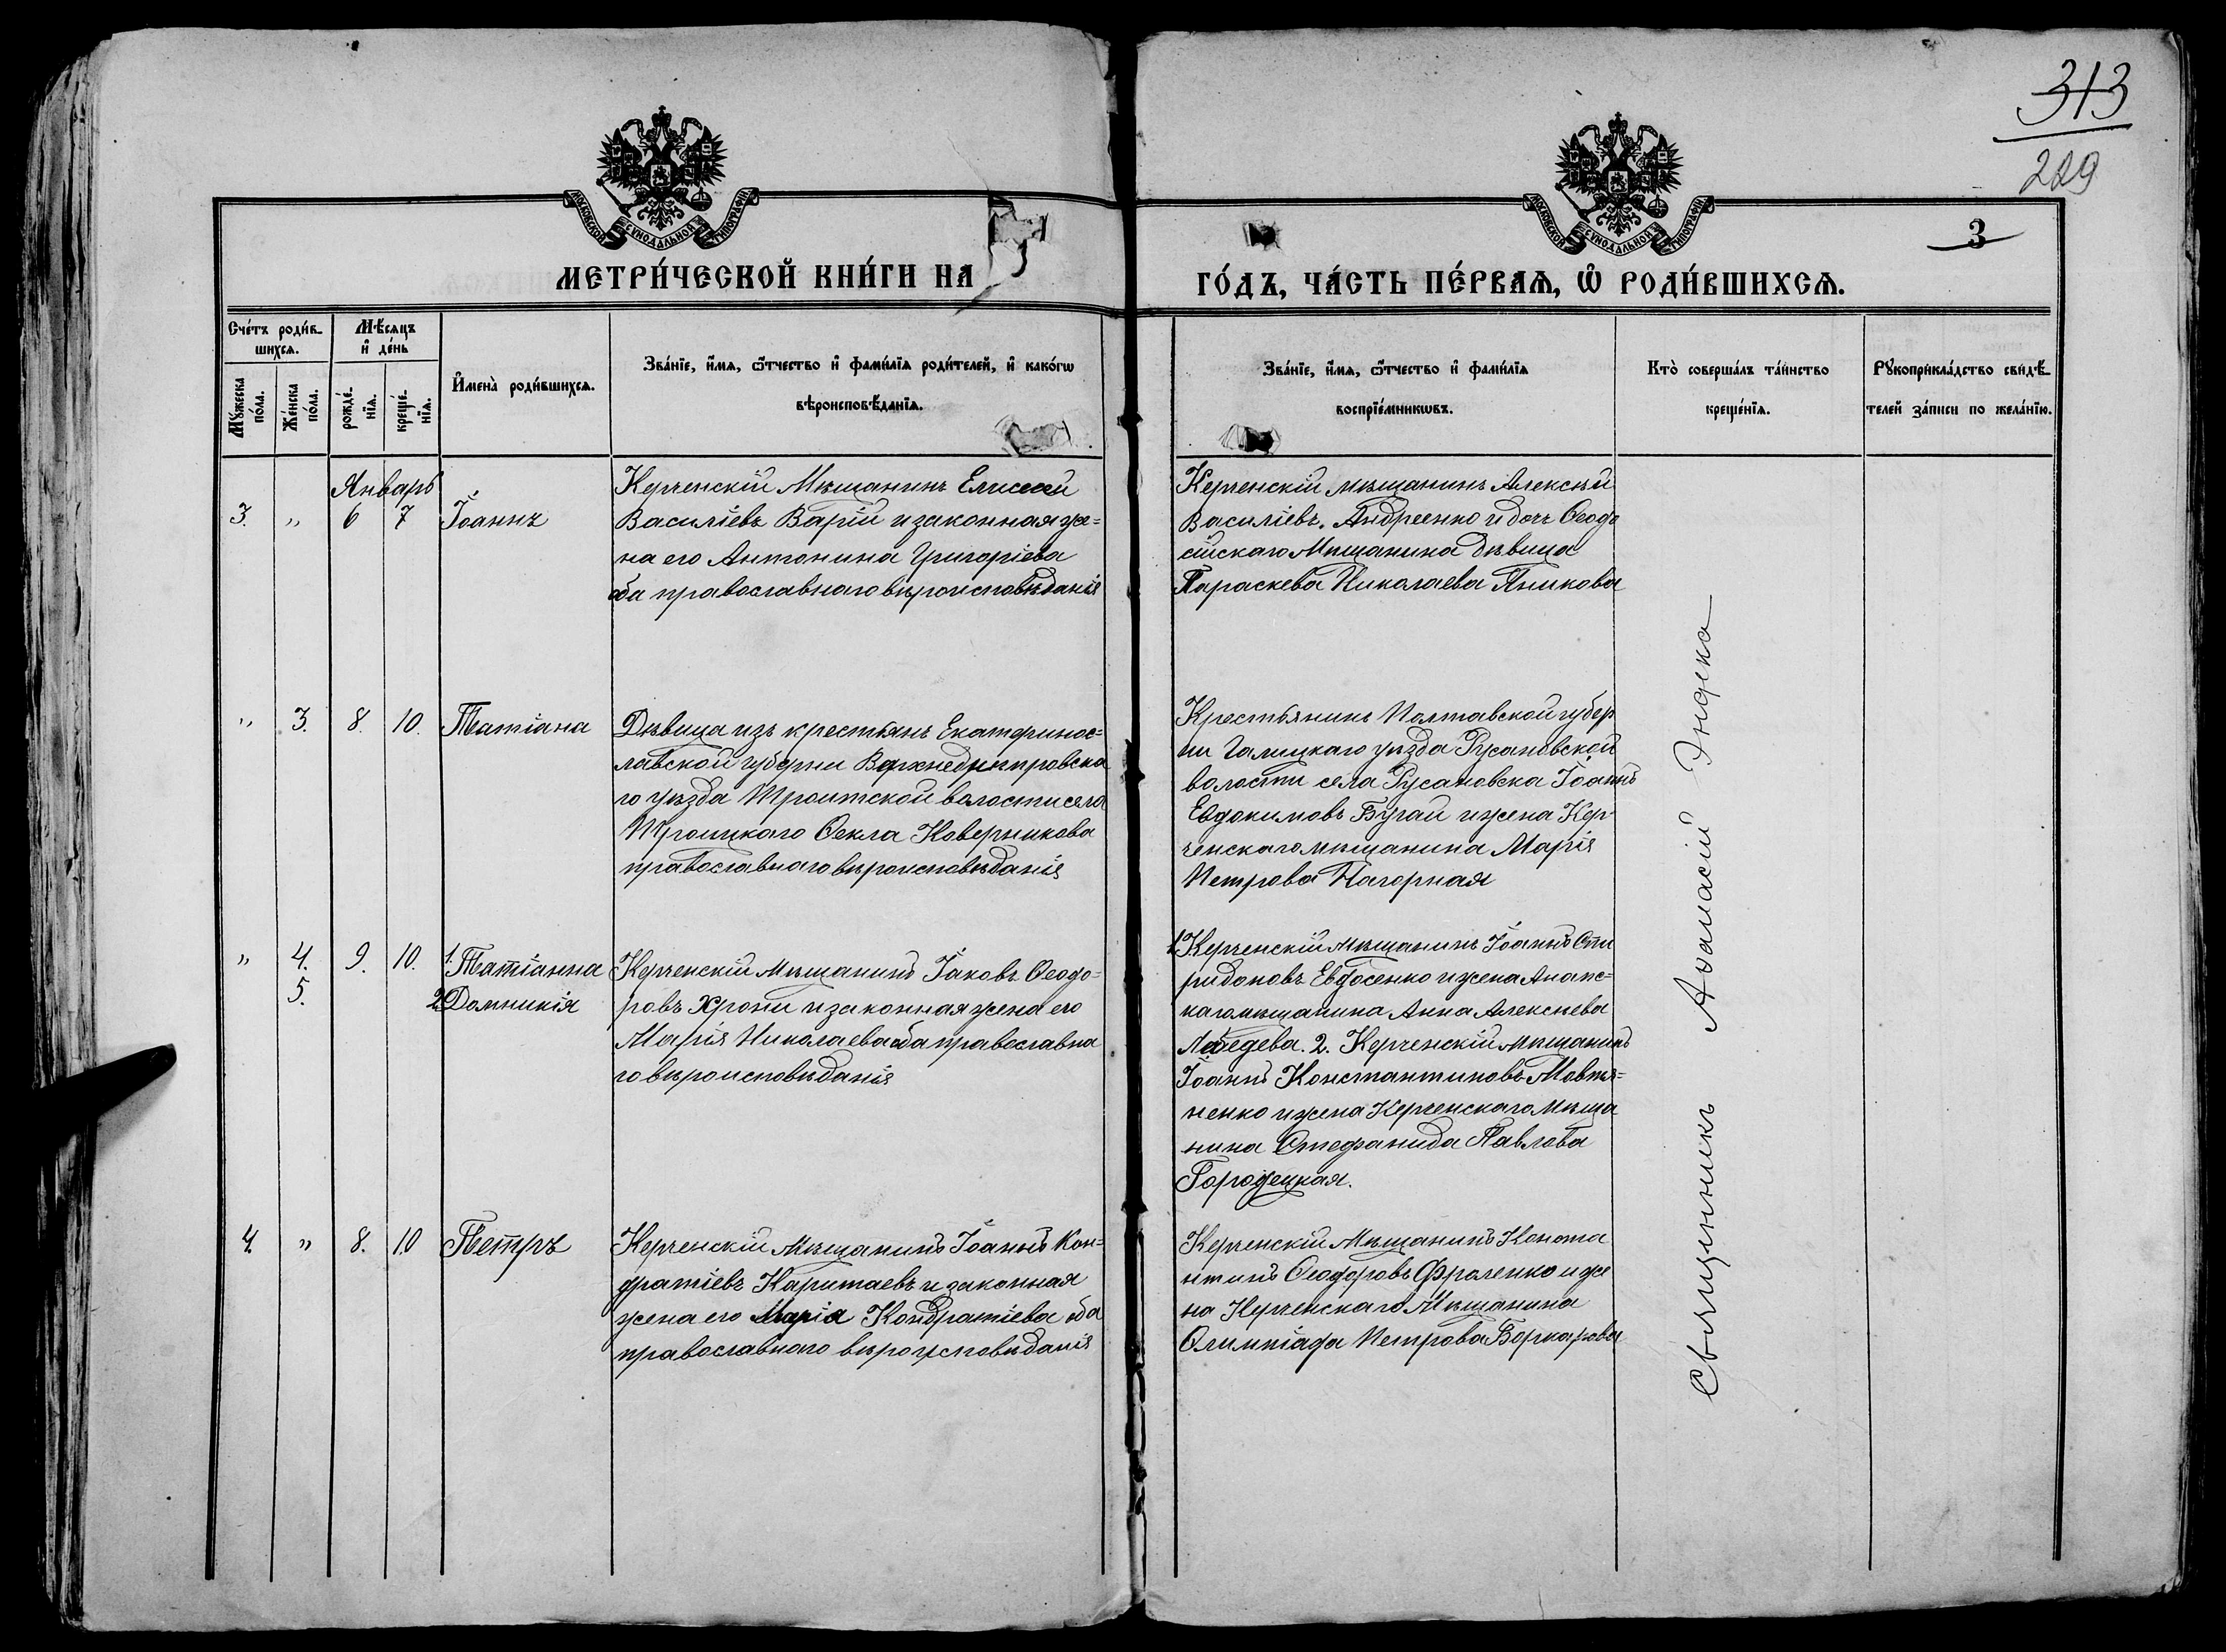 313
229
3
МОСКОВСКОЙ СѴНОДАЛЬНОЙ ТИПОГРАФІИ
МОСКОВСКОЙ СѴНОДАЛЬНОЙ ТИПОГРАФІИ
МЕТРИ́ЧЕСКОЙ КНИ́ГИ НА
ГО́ДЪ, ЧА́СТЬ ПЕ́РВАѦ, Ѡ҆ РОДИ́ВШИХСѦ.
Сче́тъ роди́в-
шихсѧ.
Мѣ́сѧцъ
и҆ де́нь
Мꙋ́жеска
по́ла.
Же́нска
по́ла.
рожде́-
нїѧ.
креще́-
нїѧ.
И҆мена̀ роди́вшихсѧ.
Зва́нїе, и҆́мѧ, ѻ҆́тчество и҆ фами́лїѧ роди́телей, и҆ како́гѡ
вѣроисповѣ́данїѧ.
Зва́нїе, и҆́мѧ, ѻ҆́тчество и҆ фами́лїѧ
воспрїе́мникѡвъ.
Кто̀ соверша́лъ та́инство
креще́нїѧ.
Рꙋкоприкла́дство свидѣ́-
телей за́писи по жела́нїю.
Январь
3. " 6 7 Іоаннъ
Керченскій Мѣщанинъ Елисей
Василіевъ Варій и законная же=
на его Антонина Григоріева
оба православнаго вѣроисповѣданія
Керченскій мѣщанинъ Алексѣй
Василіевъ Андреенко и дочь Ѳеодо
сійскаго Мѣщанина дѣвица
Параскева Николаева Яникова
" 3. 8. 10. Татіана
Дѣвица изъ крестьянъ Екатеринос=
лавской губерніи Верхнеднѣпровска
го уѣзда Троитской волости села
Троицкаго Ѳекла Коверникова
православнаго вѣроисповѣданія
Крестьянинъ Полтавской губер
ніи уѣзда Русановской
волости села Русановска Іоаннъ
Евдокимовъ Бугай и жена Кер
ченскаго мѣщанина Марія
Петрова Нагорная
" 4. 9. 10. 1. Татіанна
5. 2. Домникія
Керченскій Мѣщанинъ Іаковъ Ѳеодо=
ровъ Хрони и законная жена его
Марія Николаева оба православна
го вѣроисповѣданія
1. Керченскій Мѣщанинъ Іоаннъ Спи
ридоновъ Евдосенко и жена Анапс=
каго мѣщанина Анна Алексѣева
Лебедева. 2. Керченскій Мѣщанинъ
Іоаннъ Константиновъ Мовтя=
ненко и жена Керченскаго Мѣща
нина Стефанида Павлова
Городецкая.
4. " 8. 10 Петръ
Керченскій Мѣщанинъ Іоаннъ Кон=
дратіевъ Каритаевъ и законная
жена его Марія Кондратіева оба
православнаго вѣроисповѣданія
Керченскій Мѣщанинъ Конста
нтинъ Ѳеодоровъ Фроленко и же
на Керченскаго Мѣщанина
Олимпіада Петрова
Священникъ Аѳанасій Эндека